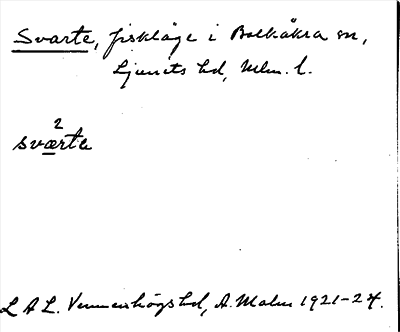 Svarte, fiskläge i Balkåkra sn,
Ljunits hd, Mlm. l.
2
sværte
L A L. Vemmenhögs hd, A. Malm 1921-24.